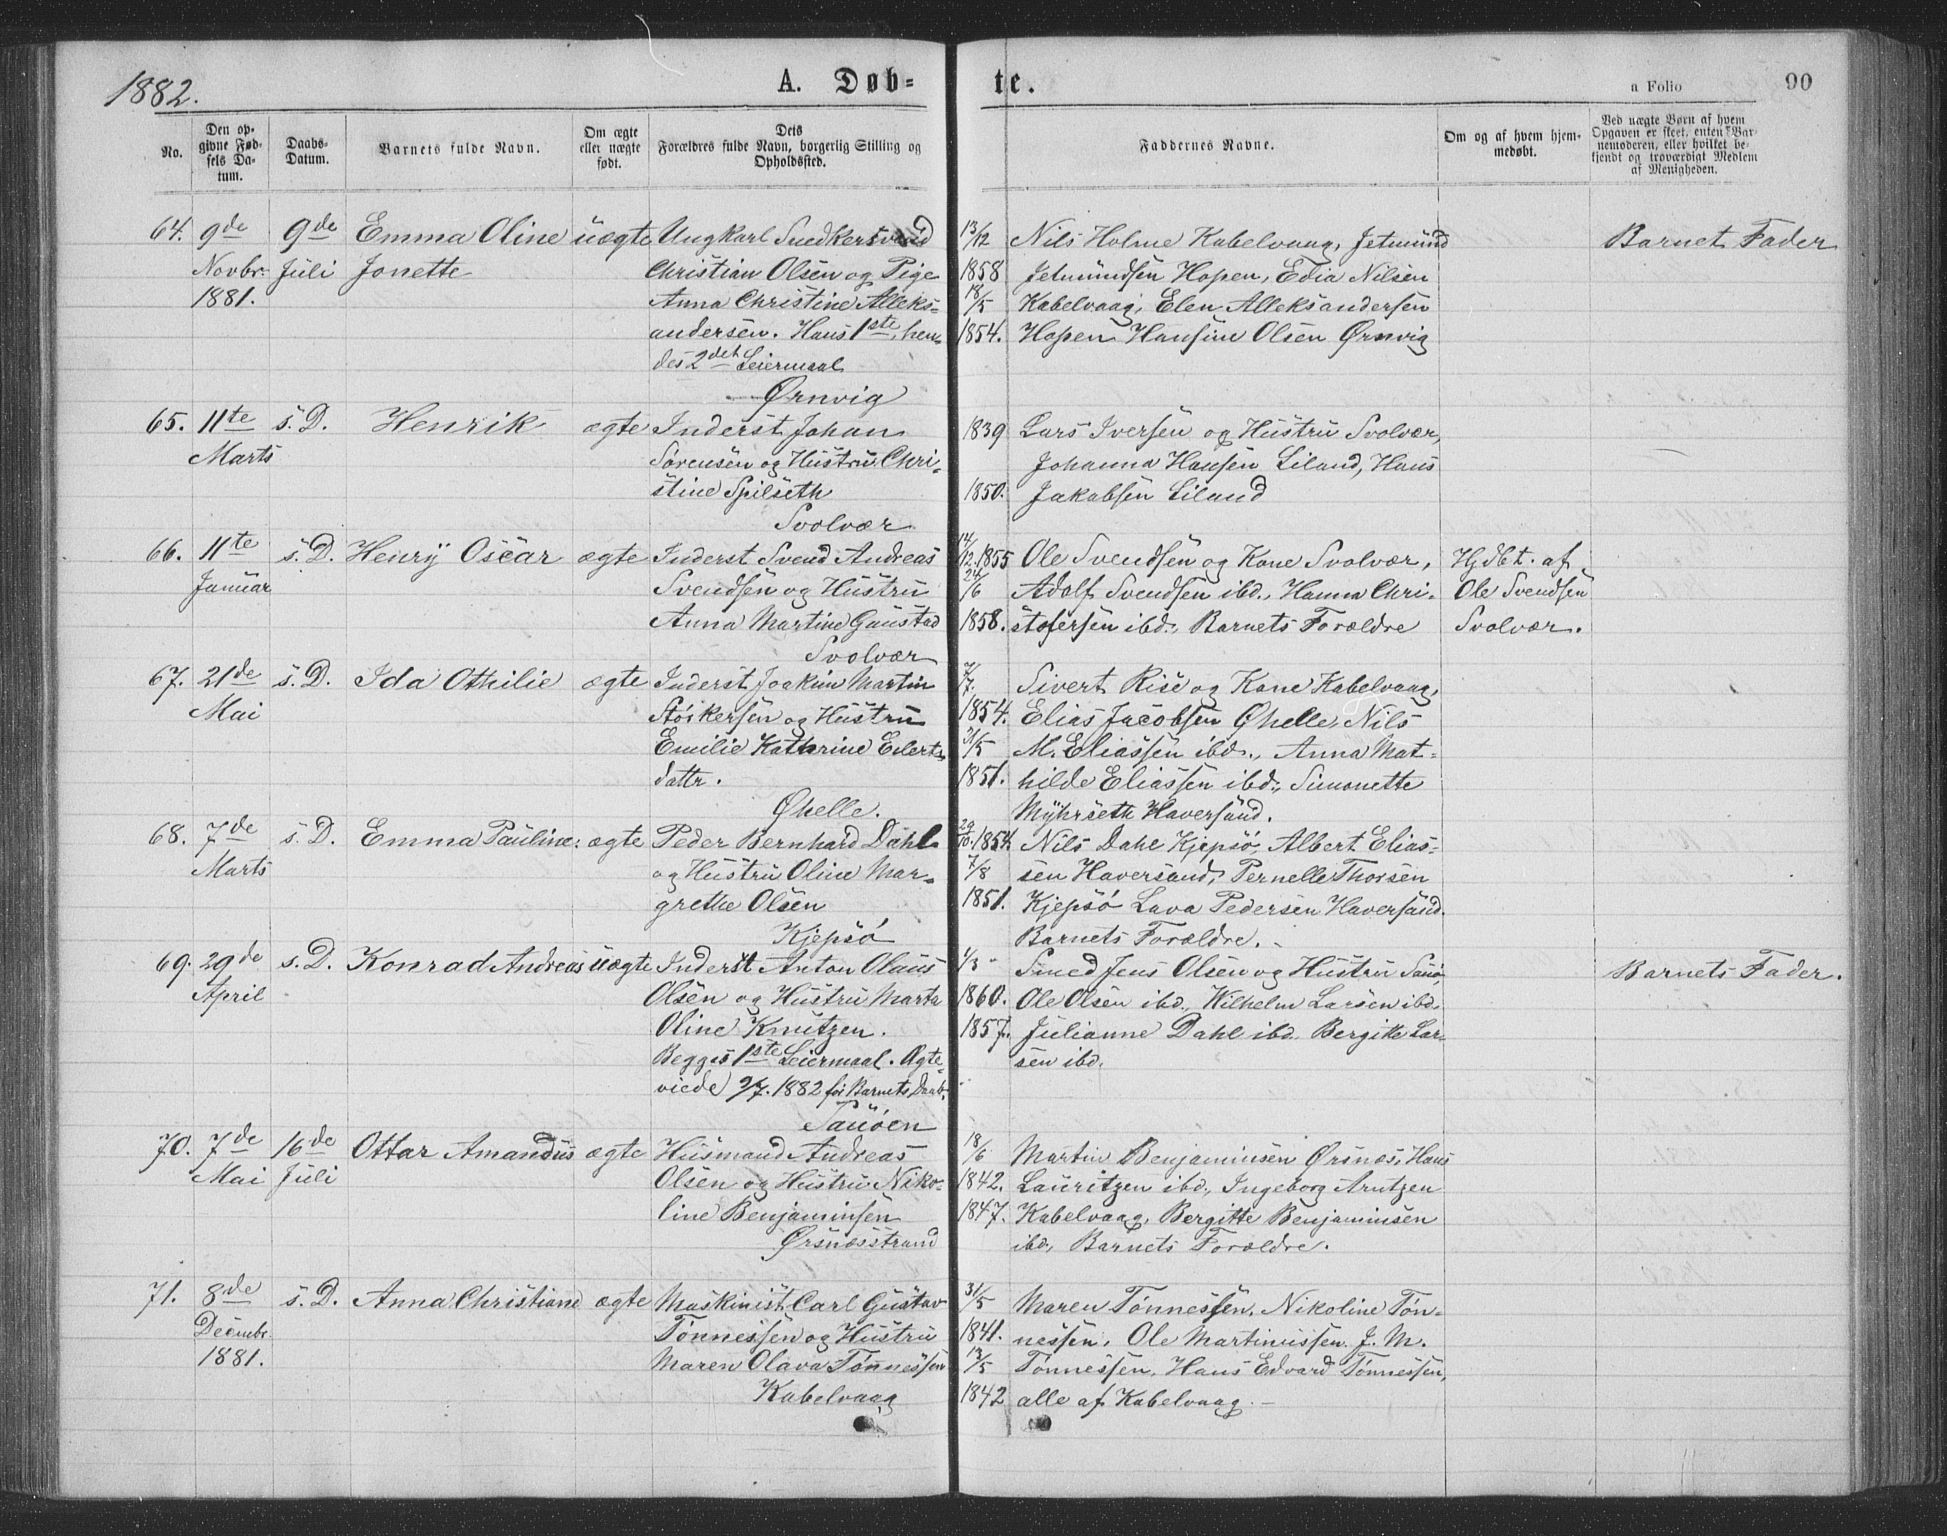 1882.
A. Døb=
te.
a Folio
90
No.
Den op-
givne Fød-
sels Da-
tum.
Daabs-
Datum.
Barnets fulde Navn.
Om ægte
eller uægte
født.
Dets
Forældres fulde Navn, borgerlig Stilling og
Opholdsted.
Faddernes Navne.
Om og af hvem hjem-
medøbt.
Ved uægte Børn af hvem
Opgaven er skeet, enten Bar-
nemoderen, eller hvilket be-
kjendt og troværdigt Medlem
af Menigheden.
64.
9de
Novbr.
1881.
9de
Juli
Emma Oline
Jonette
uægte
Ungkarl Snedkersvend
Christian Olsen og Pige
Anna Christine Alleks-
andersen. Hans 1ste, hen-
des 2det Leiermaal
Ørnvig
13/12
1858
18/5
1854.
Nils Holme Kabelvaag, Jetmund
Jetmundsen Hopen, Edia Nilsen
Kabelvaag, Elen Alleksandersen
Hopen Hansine Olsen Ørnvig
Barnet Fader
65.
11te
Marts
s. D.
Henrik
ægte
Inderst Johan
Sørensen og Hustru Chri-
stine Spilseth
Svolvær
1839
1850.
Lars Iversen og Hustru Svolvær,
Johanna Hansen Liland, Hans
Jakobsen Liland
66.
11te
Januar
s. D.
Henry Oscar
ægte
Inderst Svend Andreas
Svendsen og Hustru
Anna Martine Gaustad
Svolvær
14/12. 1855
24/6
1858.
Ole Svendsen og Kone Svolvær,
Adolf Svendsen ibd., Hanna Chri-
stofersen ibd., Barnets Forældre
Hjdbt. af
Ole Svendsen
Svolvær.
67.
21de
Mai
s. D.
Ida Othilie
ægte
Inderst Joakim Martin
Størkersen og Hustru
Emilie Kathrine Eilerts-
dattr.
Øhelle.
7/7.
1854.
31/5
1851.
Sivert Rise og Kone Kabelvaag,
Elias Jacobsen Øhelle, Nils
M. Eliassen ibd., Anna Mat-
hilde Eliassen ibd., Simonette
Myhrseth Haversand.
68.
7de
Marts
s. D.
Emma Pauline.
ægte
Peder Bernhard Dahl
og Hustru Oline Mar-
grethe Olsen
Kjepsø
29/10. 1854.
7/8
1851.
Nils Dahl Kjepsø, Albert Elias-
sen Haversand, Pernelle Thorsen
Kjepsø Lava Pedersen Haversand.
Barnets Forældre.
69.
29de
April
s. D.
Konrad Andreas
uægte
Inderst Anton Olaus
Olsen og Hustru Marta
Oline Knutzen.
Begges 1ste Leiermaal. Ægte-
viede 9/7. 1882 før Barnets Daab.
Sauøen
4/3
1860.
1857.
Smed Jens Olsen og Hustru Sauø,
Ole Olsen ibd., Wilhelm Larsen ibd.
Julianne Dahl ibd. Bergitte Lar-
sen ibd.
Barnets Fader.
70.
7de
Mai
16de
Juli
Ottar Amandus
ægte
Husmand Andreas
Olsen og Hustru Niko-
line Benjaminsen
Ørsnesstrand
18/6
1842.
1847.
Martin Benjaminsen Ørsnæs, Hans
Lauritzen ibd., Ingeborg Arntzen
Kabelvaag, Bergitte Benjaminsen
ibd., Barnets Forældre.
71.
8de
Decmbr.
1881.
s. D.
Anna Christiane
ægte
Maskinist Carl Gustav
Tønnessen og Hustru
Maren Olava Tønnessen
Kabelvaag
31/5
1841.
13/5
1842
Maren Tønnessen, Nikoline Tøn-
nessen, Ole Martinussen, J. M.
Tønnessen, Hans Edvard Tønnessen,
alle af Kabelvaag.